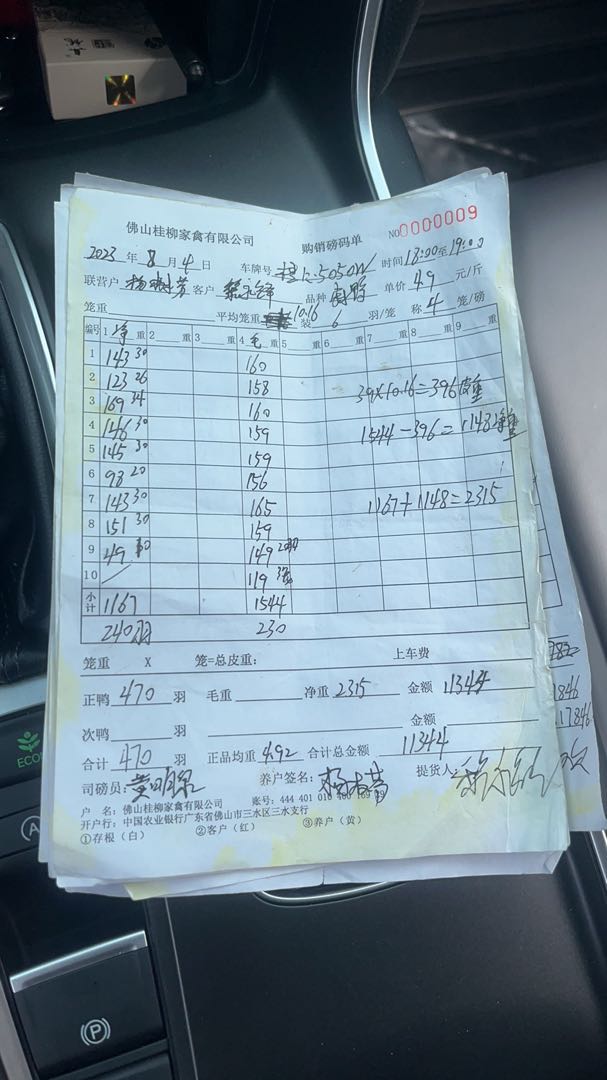 佛山桂柳家禽有限公司 购销磅码单 NO0000009
2023年8月4日 车牌号 5050W 时间18:00至19:00
联营户 杨 客户 品种 单价4.9元/斤
笼重 平均笼重 10.16 装6羽/笼 称4笼/磅
编号 1净重 2重 3重 4毛重 5重 6重 7重 8重 9重
1 143 30 160
2 123 26 158
3 169 34 160 39×10.16=396皮重
4 146 30 159 1544-396=1148净重
5 145 30 159
6 98 20 156
7 143 30 165 1167+1148=2315
8 151 30 159
9 49 10 149
10 / 119
小计 1167 1544
240羽 230
笼重 X 笼=总皮重: 上车费
正鸭470羽 毛重 净重2315 金额11344
次鸭 羽 金额
合计470羽 正品均重4.92 合计总金额11344
司磅员:黄明 养户签名:杨 提货人:
户 名:佛山桂柳家禽有限公司 账号:444 401 010 400 169
开户行:中国农业银行广东省佛山市三水区三水支行
①存根(白) ②客户(红) ③养户(黄)
1846
17846
ECO
A
P